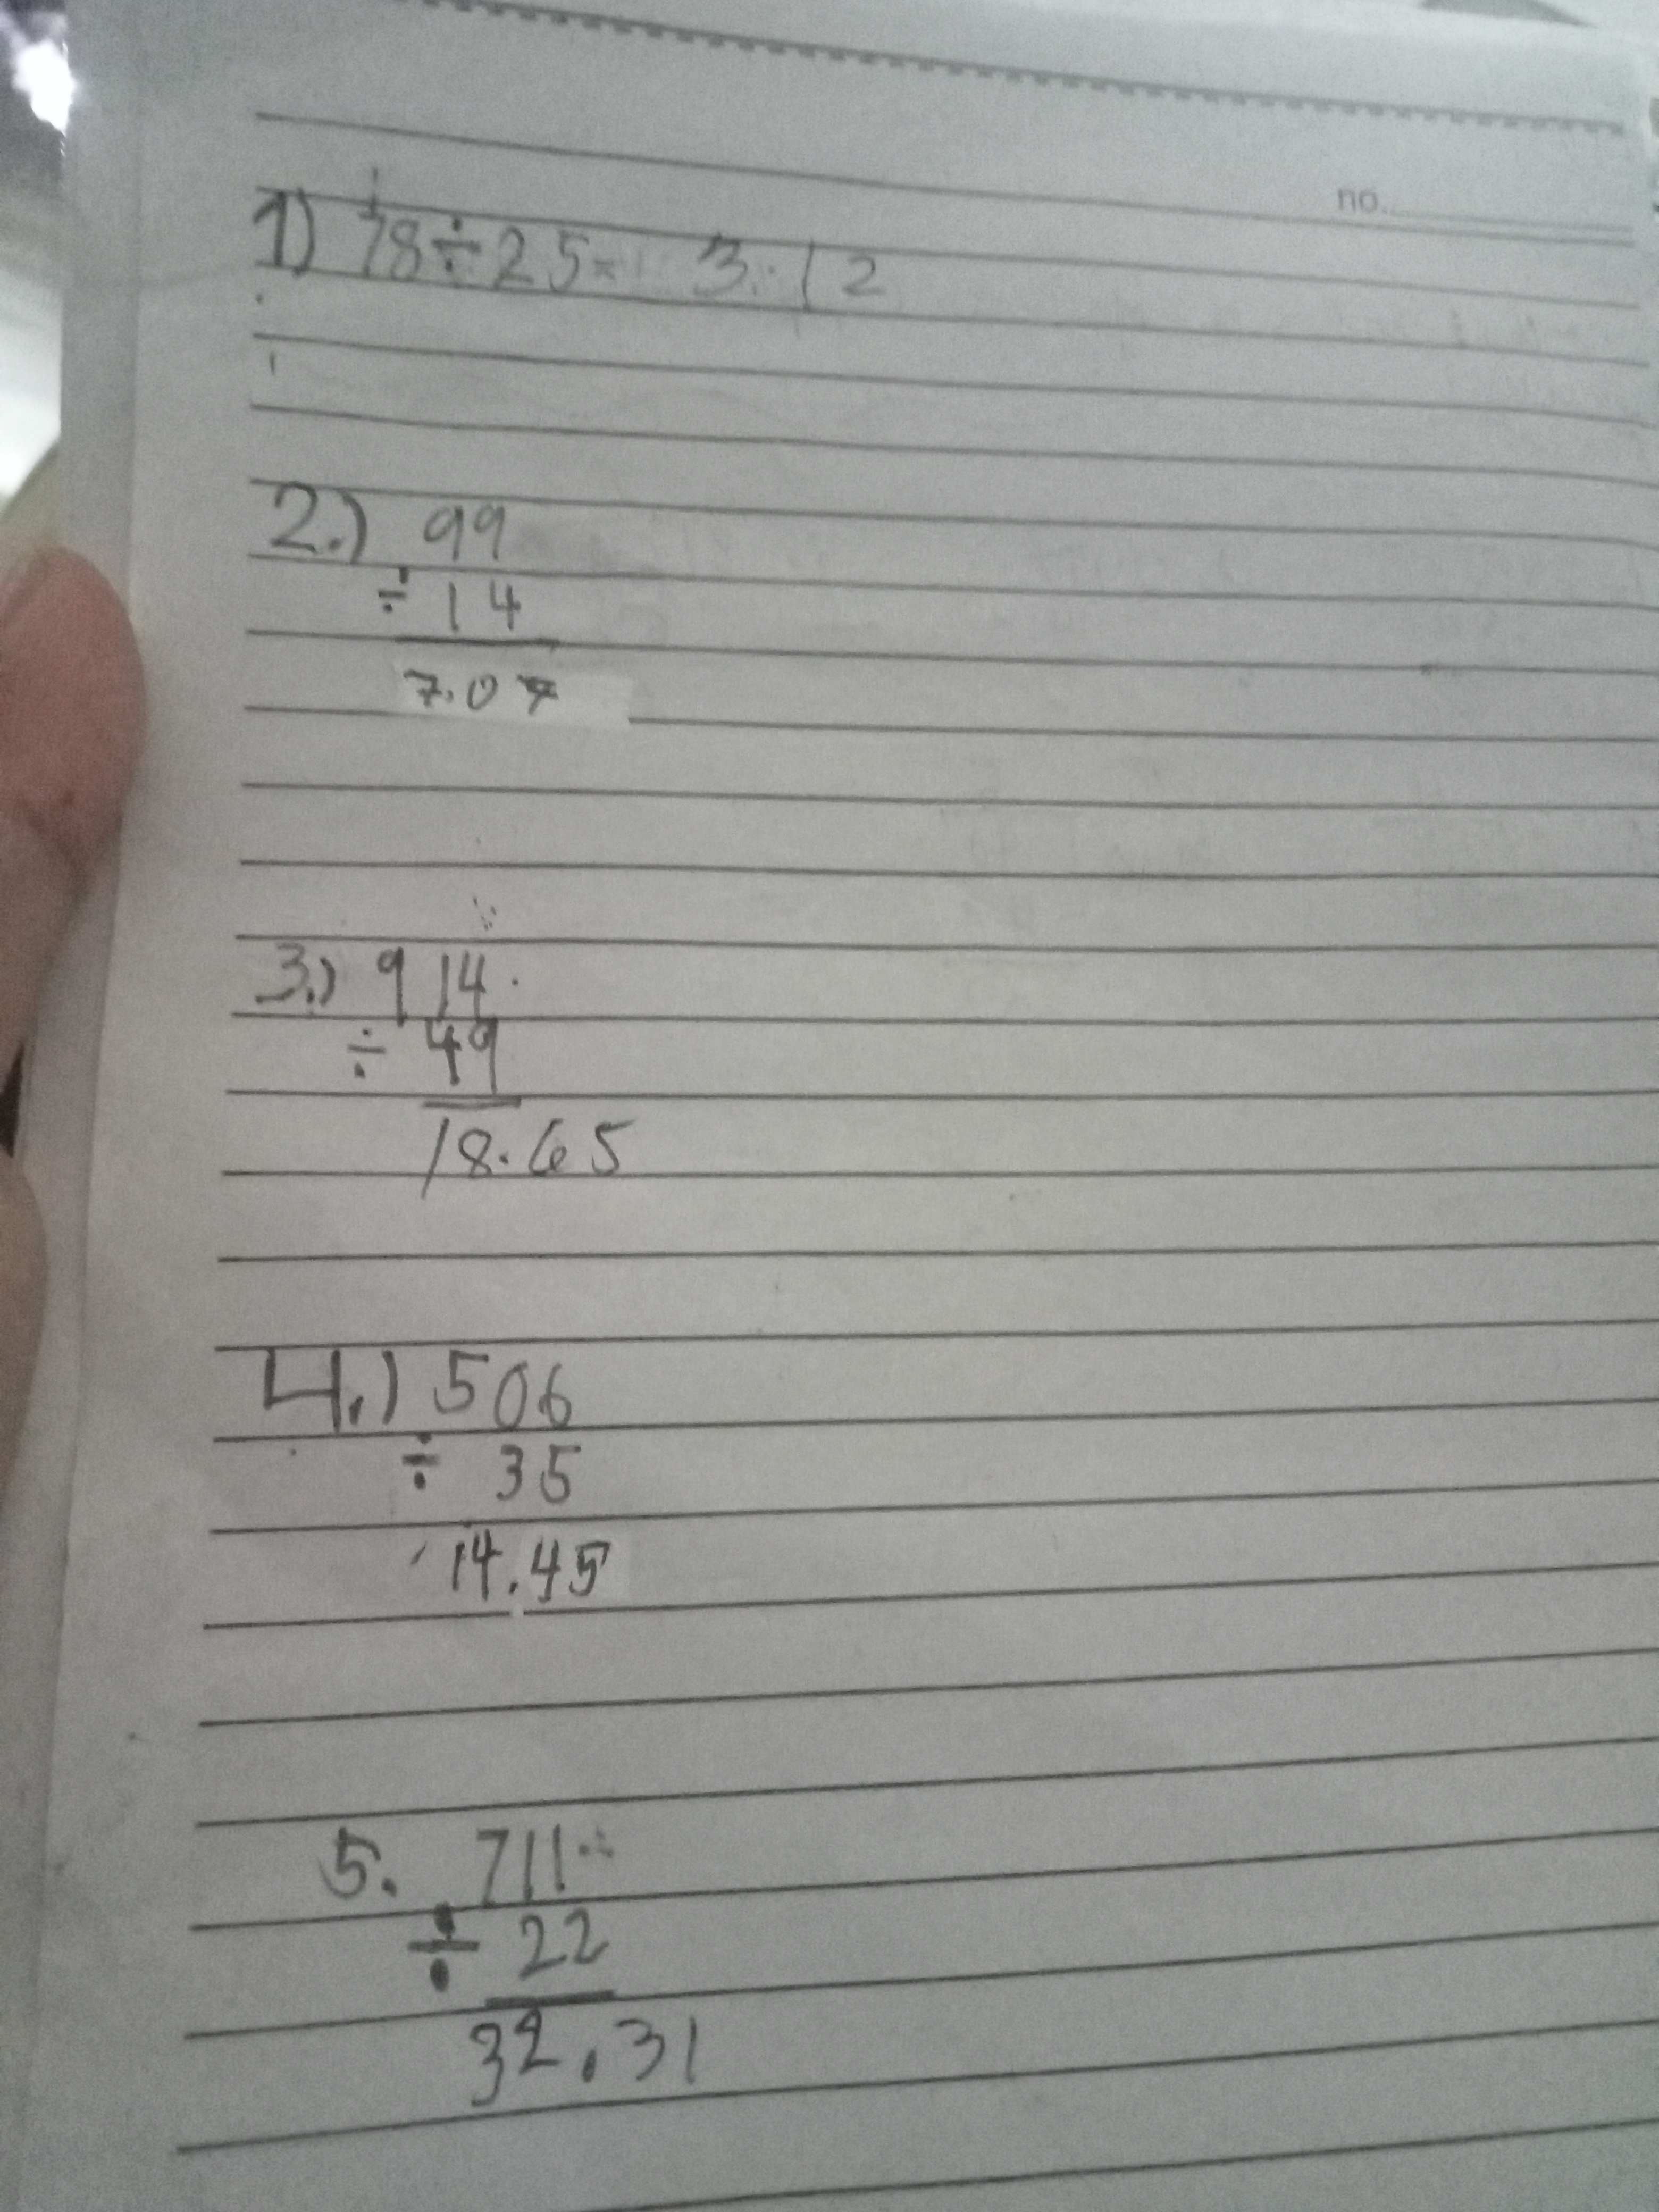 no.
1) 78÷25= 3.12
2.) 99
÷ 14
7.07
3.) 914
÷ 49
18.65
4.) 506
÷ 35
14.45
5. 711
÷ 22
32.31